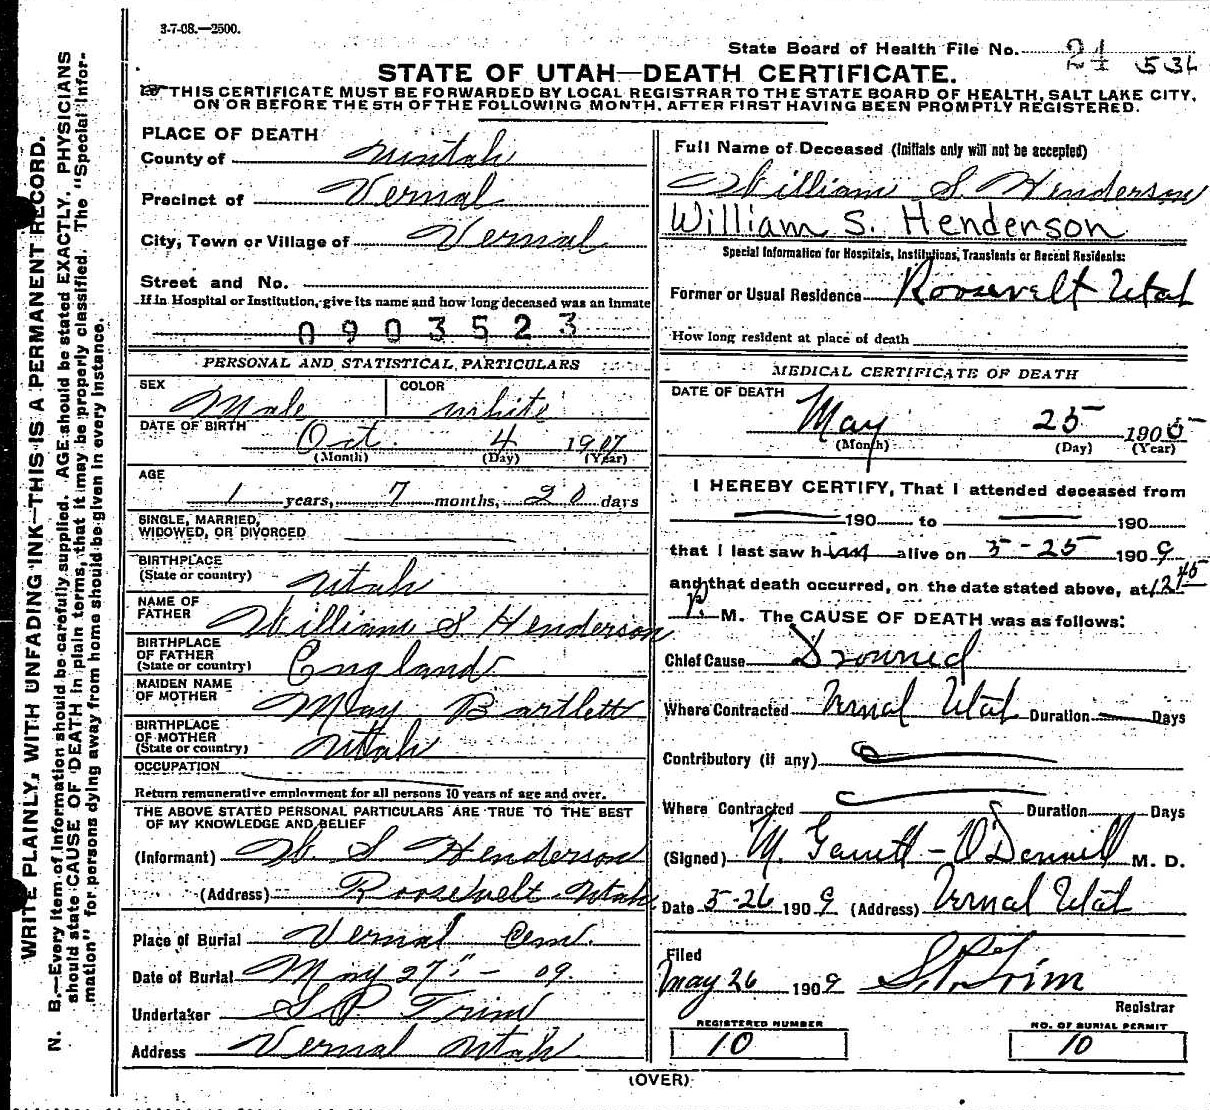 3-7-08.—2500.
State Board of Health File No. 24 536
STATE OF UTAH—DEATH CERTIFICATE.
THIS CERTIFICATE MUST BE FORWARDED BY LOCAL REGISTRAR TO THE STATE BOARD OF HEALTH, SALT LAKE CITY,
ON OR BEFORE THE 5TH OF THE FOLLOWING MONTH, AFTER FIRST HAVING BEEN PROMPTLY REGISTERED.
WRITE PLAINLY, WITH UNFADING INK—THIS IS A PERMANENT RECORD.
N. B.—Every item of Information should be carefully supplied. AGE should be stated EXACTLY. PHYSICIANS
should state CAUSE OF DEATH in plain terms, that it may be properly classified. The "Special Infor-
mation" for persons dying away from home should be given in every instance.
PLACE OF DEATH
County of Uintah
Precinct of Vernal
City, Town or Village of Vernal
Street and No.
If in Hospital or Institution, give its name and how long deceased was an inmate
0903523
PERSONAL AND STATISTICAL PARTICULARS
SEX Male COLOR white
DATE OF BIRTH Oct. 4 1907
(Month) (Day) (Year)
AGE
1 years, 7 months, 20 days
SINGLE, MARRIED,
WIDOWED, OR DIVORCED
BIRTHPLACE
(State or country) Utah
NAME OF
FATHER William S Henderson
BIRTHPLACE
OF FATHER
(State or country) England
MAIDEN NAME
OF MOTHER May Bartlett
BIRTHPLACE
OF MOTHER
(State or country) Utah
OCCUPATION
Return remunerative employment for all persons 10 years of age and over.
THE ABOVE STATED PERSONAL PARTICULARS ARE TRUE TO THE BEST
OF MY KNOWLEDGE AND BELIEF
(Informant) W. S Henderson
(Address) Roosevelt Utah
Place of Burial Vernal Cem.
Date of Burial May 27" - 09.
Undertaker S P Trim
Address Vernal Utah
Full Name of Deceased (Initials only will not be accepted)
William S. Henderson
William S. Henderson
Special Information for Hospitals, Institutions, Transients or Recent Residents:
Former or Usual Residence Roosevelt Utah
How long resident at place of death
MEDICAL CERTIFICATE OF DEATH
DATE OF DEATH
May 25 190
(Month) (Day) (Year)
I HEREBY CERTIFY, That I attended deceased from
190 to 190
that I last saw him alive on 5-25 1909
and that death occurred, on the date stated above, at 12 45
P. M. The CAUSE OF DEATH was as follows:
Chief Cause Drowned
Where Contracted Vernal Utah Duration Days
Contributory (if any)
Where Contracted Duration Days
(Signed) M Garrett - O'Donnell M. D.
Date 5-26 1909 (Address) Vernal Utah
Filed
May 26 1909 S. P. Trim
Registrar
REGISTERED NUMBER
10
NO. OF BURIAL PERMIT
10
(OVER)